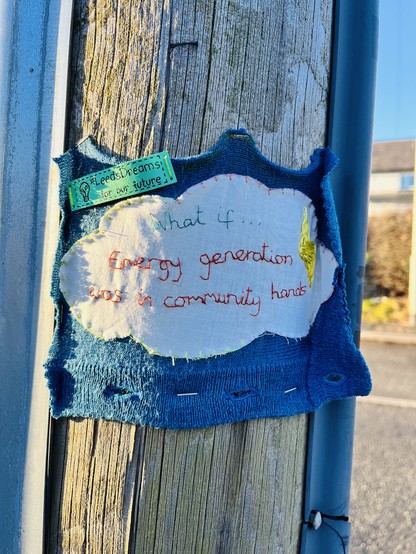 #LeedsDreams
for our future
What if...
Energy generation
was in community hands